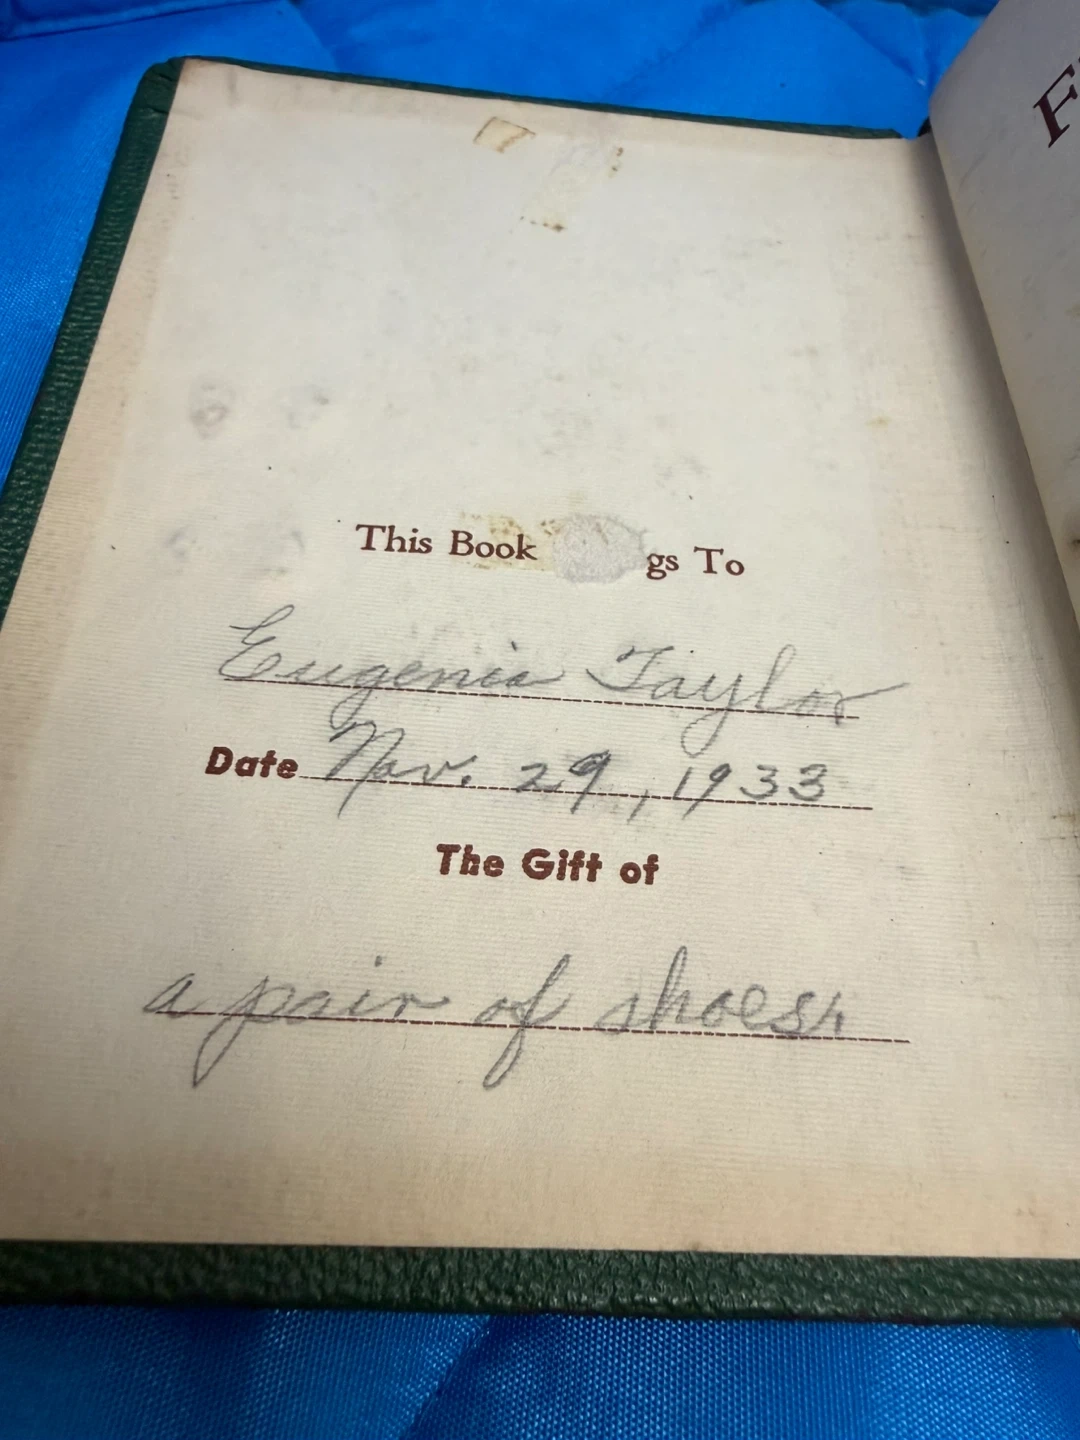 This Book gs To
Eugenia Taylor
Date Nov. 29, 1933
The Gift of
a pair of shoes.
F